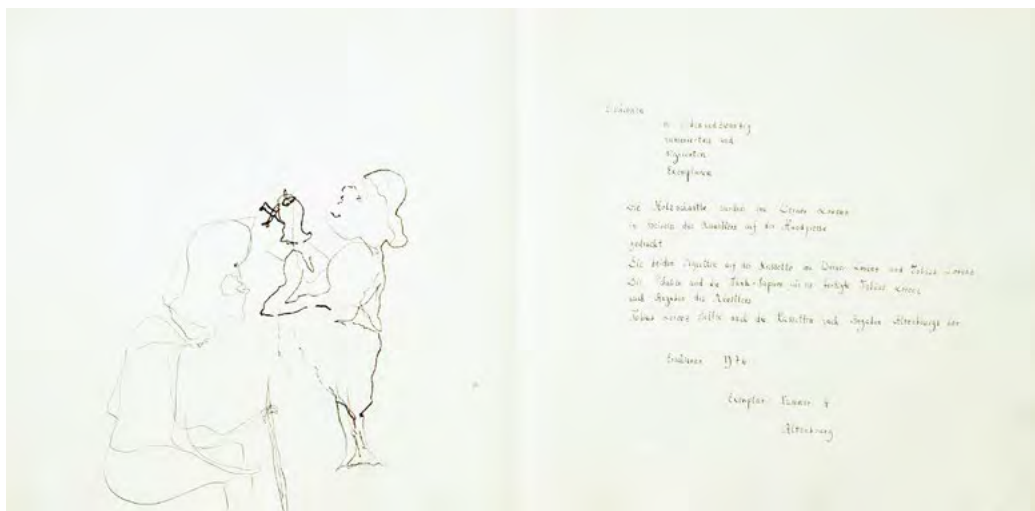 numerierten und
signierten
Exemplaren
Die Holzschnitte wurden von Werner Lorenz
in Beisein des Künstlers auf der Handpresse
gedruckt
Die beiden auf der Kassette von Werner Lorenz und Tobias Lorenz
Die und die Tunk-Papiere fertigte Tobias Lorenz
nach Angaben des Künstlers
Tobias Lorenz stellte auch die Kassetten nach Angaben Altenbourgs her
Erschienen 1974
Exemplar Nummer 4
Altenbourg